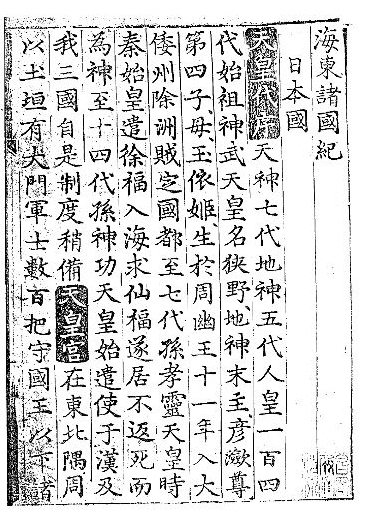 海東諸國紀
日本國
天皇代序天神七代地神五代人皇一百四
代始祖神武天皇名狹野地神末主彦瀲尊
第四子母玉依姬生於周幽王十一年入大
倭州除洲賊定國都至七代孫孝靈天皇時
秦始皇遣徐福入海求仙福遂居不返死而
為神至十四代孫神功天皇始遣使于漢及
我三國自是制度稍備天皇宮在東北隅周
以土垣有大門軍士數百把守國王以下諸